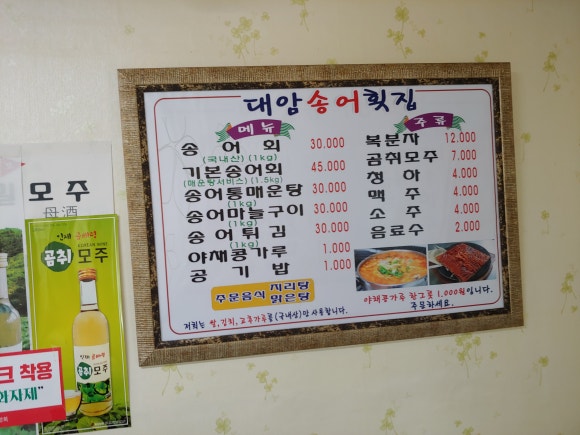 대암송어횟집
메뉴
송어회 30.000
(국내산) (1kg)
기본송어회 45.000
(매운탕서비스) (1.5kg)
송어통매운탕 30.000
(1kg)
송어마늘구이 30.000
(1kg)
송어튀김 30.000
(1kg)
야채콩가루 1.000
공기밥 1.000
주문음식 지리탕
맑은탕
저희는 쌀,김치,고춧가루를(국내산)만 사용합니다.
주류
복분자 12.000
곰취모주 7.000
청하 4.000
맥주 4.000
소주 4.000
음료수 2.000
야채콩가루 한그릇 1.000원입니다.
주문하세요.
모주
母酒
인제
곰취모주
곰취
모주
크 착용